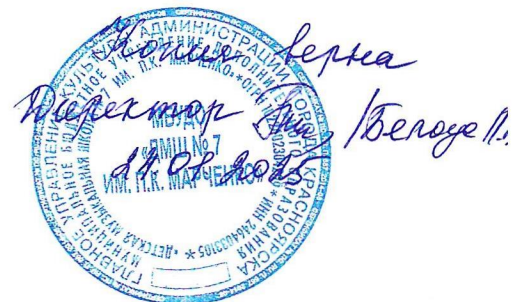 Копия верна
Директор
ГЛАВНОЕ УПРАВЛЕНИЕ КУЛЬТУРЫ АДМИНИСТРАЦИИ ГОРОДА КРАСНОЯРСКА
МУНИЦИПАЛЬНОЕ БЮДЖЕТНОЕ УЧРЕЖДЕНИЕ ДОПОЛНИТЕЛЬНОГО ОБРАЗОВАНИЯ
* ДЕТСКАЯ МУЗЫКАЛЬНАЯ ШКОЛА № 7 ИМ. П.К. МАРЧЕНКО» * ОГРН * ИНН 2464033105 *
МБУДО
«ДМШ № 7
ИМ. П.К. МАРЧЕНКО»
2025